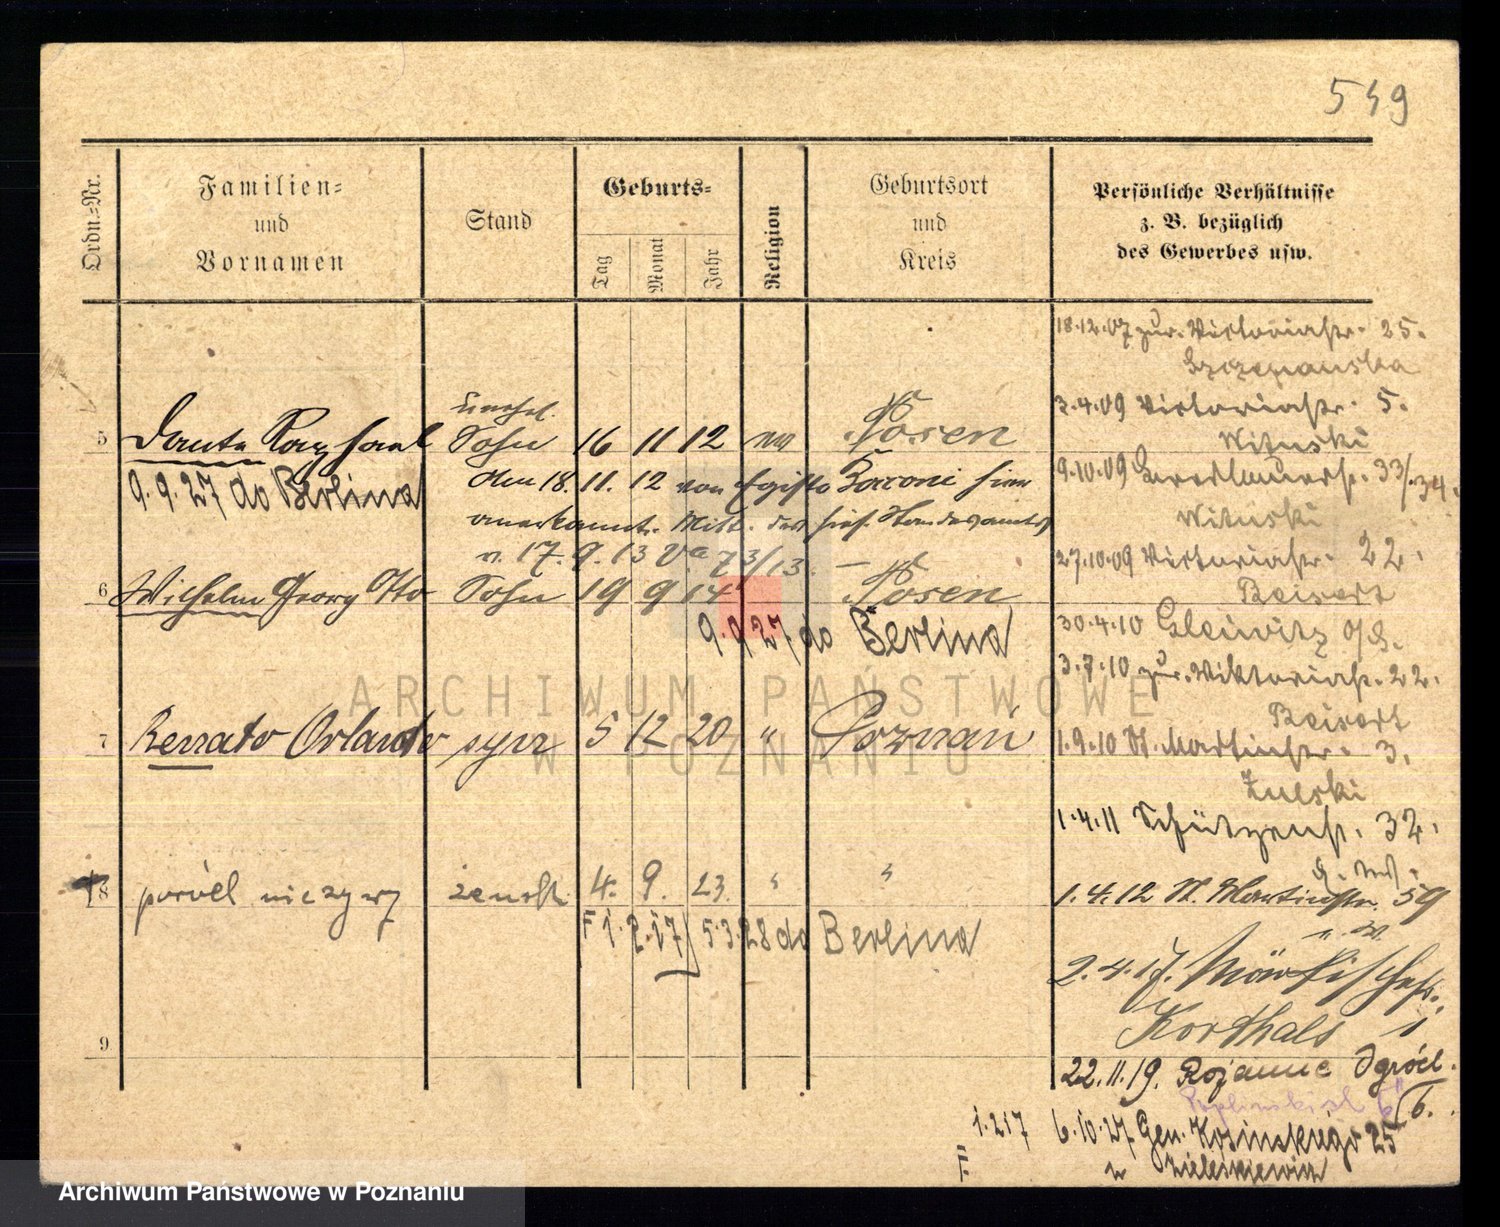 549
Ordn.=Nr.
Familien=
und
Vornamen
Stand
Geburts=
Tag
Monat
Jahr
Religion
Geburtsort
und
Kreis
Persönliche Verhältnisse
z. B. bezüglich
des Gewerbes usw.
18.12.07 zur. Victoriastr. 25.
Szczepanska
3.4.09 Victoriastr. 5.
Wituski
9.10.09 33/34.
Wituski
27.10.09 Victoriastr. 22.
Beisert
30.4.10 Gleiwitz O/S.
3.7.10 zur. Viktoriastr. 22.
Beisert
1.9.10 St. Martinstr. 3.
Zulski
1.4.11 Schützenstr. 32.
1.4.12 St. Martinstr. 59
2.4.17.
Korthals
22.11.19. Ogród.
6.10.27 Gen. Kosinskiego 25
unehel.
5 Dante Raphael Sohn 16 11 12 Posen
9.9.27 do Berlina
den 18.11.12 von Egisto hier
anerkannt. Mitt. des hies. Standesamts
v. 17.9.13 73/13.
6 Wilhelm Georg Otto Sohn 19 9 14 Posen
9.9.27 do Berlina
7 Renato Orlando syn 5 12 20 " Poznań
8 poród nieżywy żeńsk. 4. 9. 23. " "
F 1.217 5.3.28 do Berlina
9
1.217
F.
ARCHIWUM PAŃSTWOWE
W POZNANIU
Archiwum Państwowe w Poznaniu